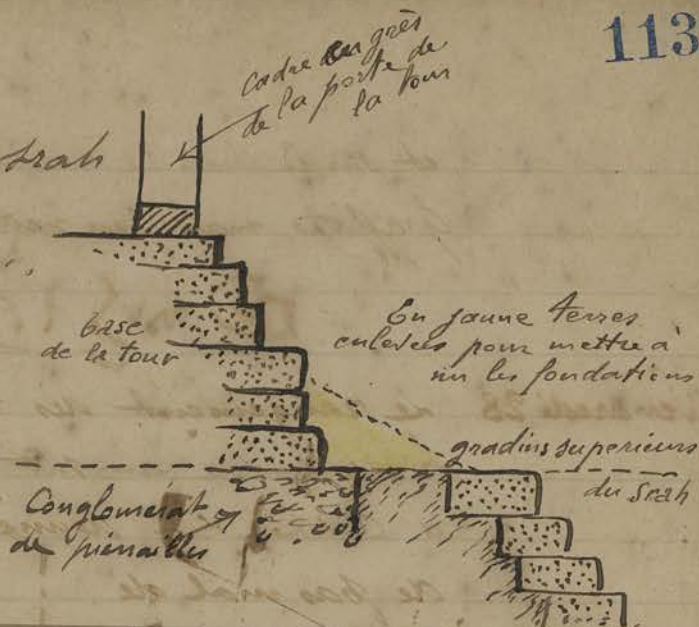 113
cadre en grès
de la porte de
la tour
Srah
base
de la tour
En jaune terres
enlevées pour mettre à
nu les fondations
gradins supérieurs
du Srah
Conglomérat
de pierrailles